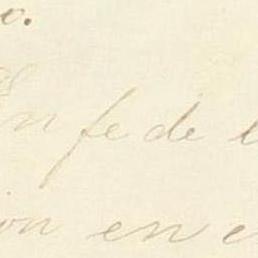 o.
En fe de l
ion en e